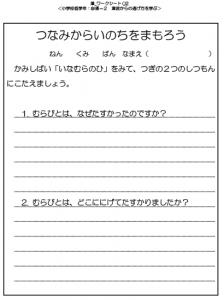 ＜小学校低学年：自現－２　津波からの逃げ方を学ぶ＞
つなみからいのちをまもろう
ねん　くみ　ばん　なまえ（　　　　　　　　）
かみしばい「いなむらのひ」をみて、つぎの２つのしつもん
にこたえましょう。
1. むらびとは、なぜたすかったのですか？
2. むらびとは、どこににげてたすかりましたか？